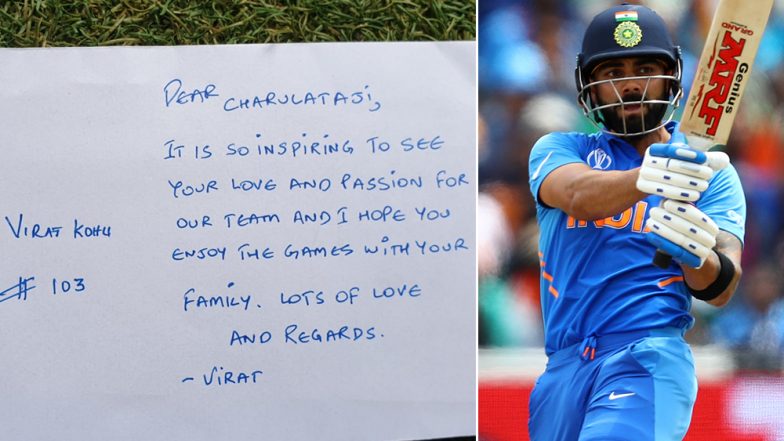 DEAR CHARULATAJI,
IT IS SO INSPIRING TO SEE
YOUR LOVE AND PASSION FOR
OUR TEAM AND I HOPE YOU
ENJOY THE GAMES WITH YOUR
FAMILY. LOTS OF LOVE
AND REGARDS.
- VIRAT
VIRAT KOHLI
# 103
GRAND
MRF
Genius